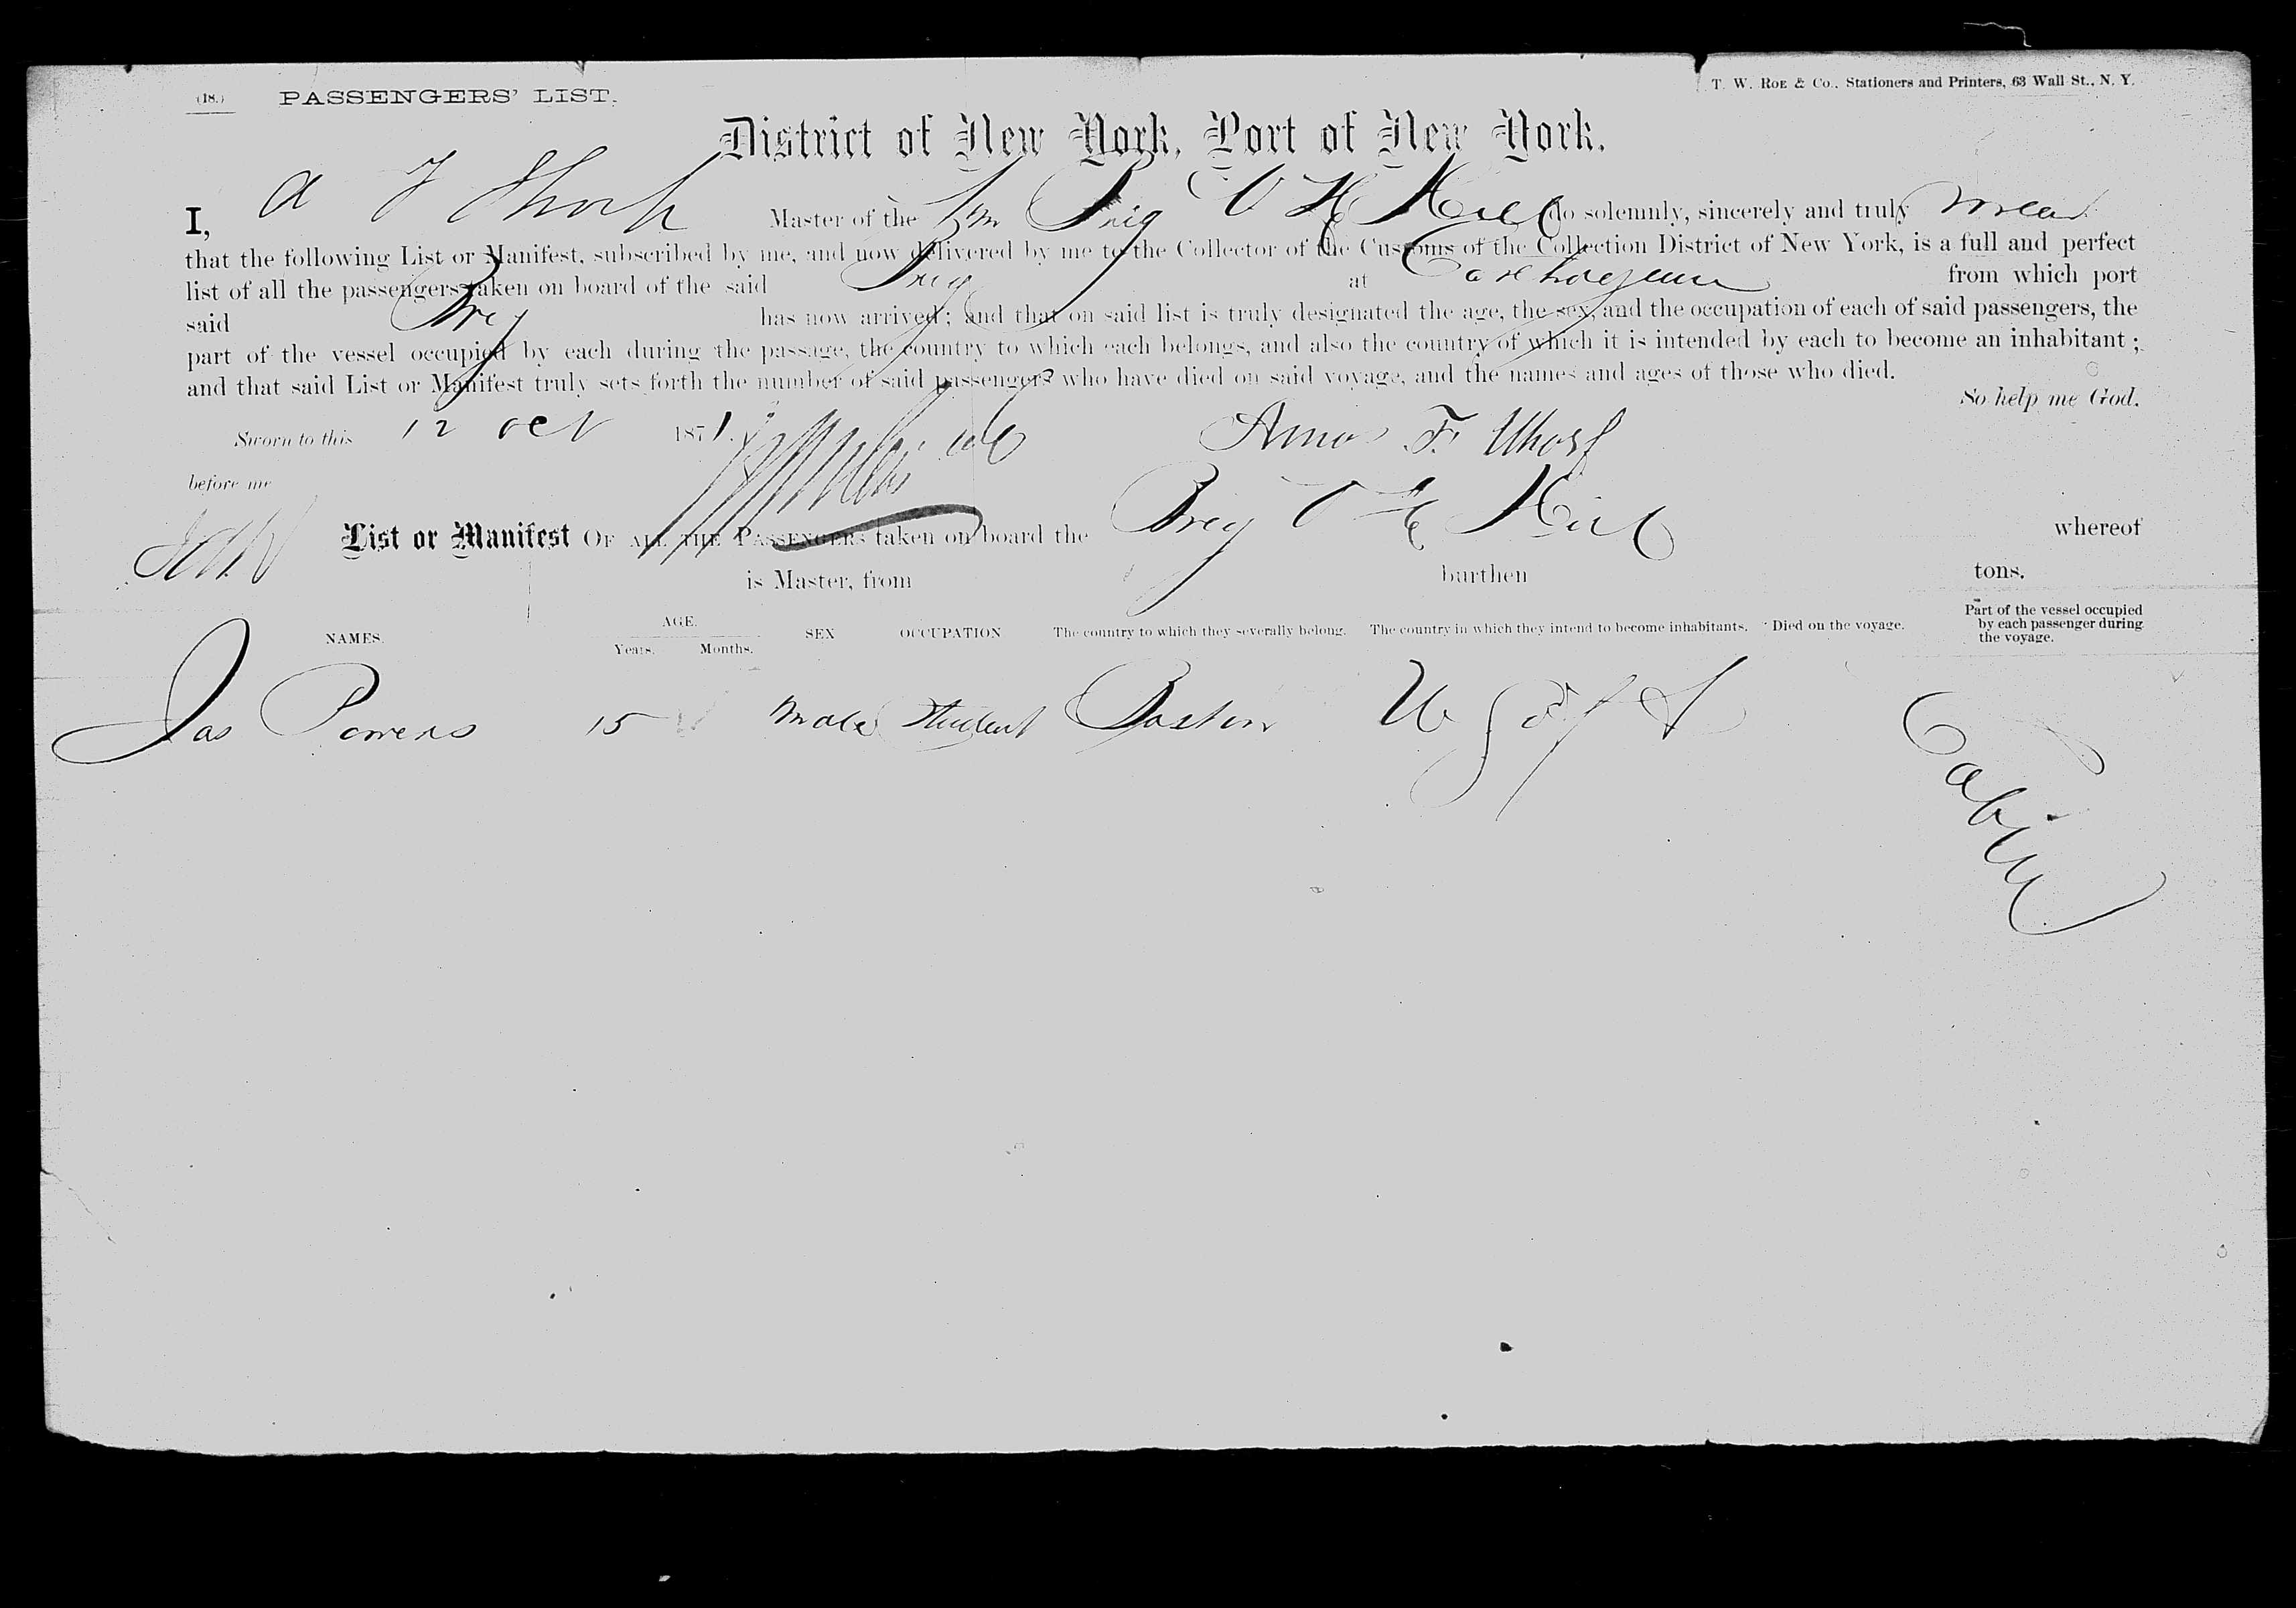 (18.) PASSENGERS' LIST. T. W. ROE & Co., Stationers and Printers, 63 Wall St., N. Y.
District of New York, Port of New York.
I, A F Master of the Brig do solemnly, sincerely and truly swear
that the following List or Manifest, subscribed by me, and now delivered by me to the Collector of the Customs of the Collection District of New York, is a full and perfect
list of all the passengers taken on board of the said Brig at from which port
said Brig has now arrived; and that on said list is truly designated the age, the sex, and the occupation of each of said passengers, the
part of the vessel occupied by each during the passage, the country to which each belongs, and also the country of which it is intended by each to become an inhabitant;
and that said List or Manifest truly sets forth the number of said passengers who have died on said voyage, and the names and ages of those who died.
So help me God.
Sworn to this 12 Oct 1871. Amos F. Whorf
before me
List or Manifest OF ALL THE PASSENGERS taken on board the Brig whereof
is Master, from burthen tons.
NAMES. AGE. Years. Months. SEX OCCUPATION The country to which they severally belong. The country in which they intend to become inhabitants. Died on the voyage. Part of the vessel occupied by each passenger during the voyage.
Jas Powers 15 male Student Boston U S of A Cabin